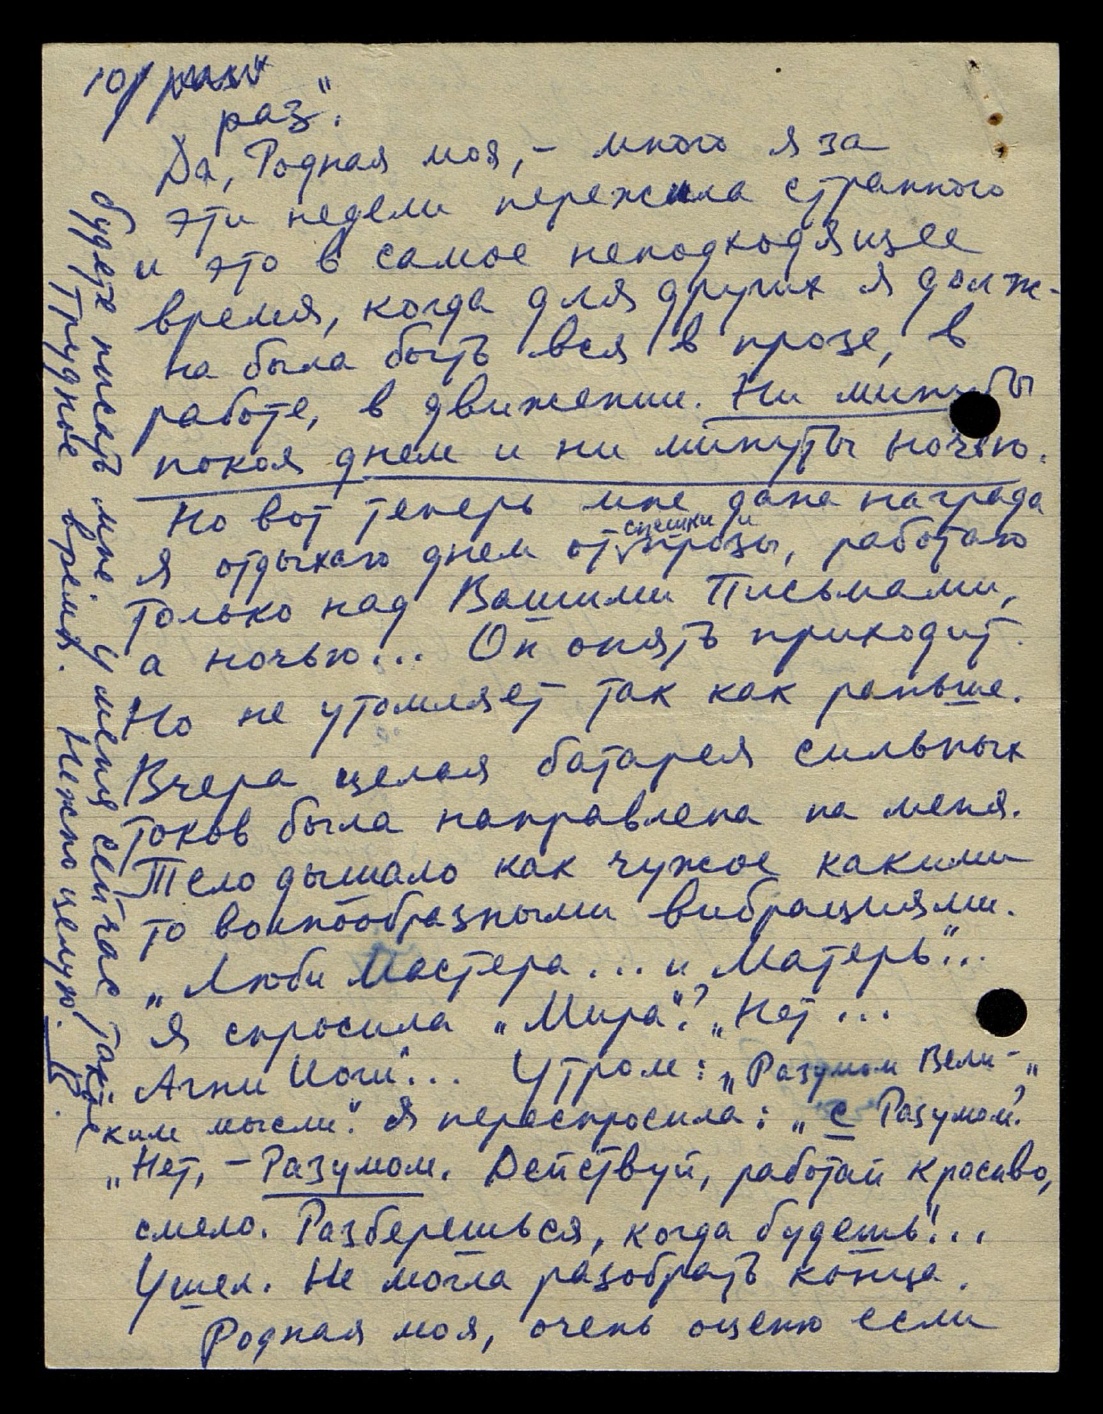 10/
раз".
Да, Родная моя, – много я за
эти недели пережила странного
и это в самое неподходящее
время, когда для других я долж-
на была быть вся в прозе, в
работе, в движении. Ни минуты
покоя днем и ни минуты ночью.
Но вот теперь мне дана награда
я отдыхаю днем от спешки и прозы, работаю
только над Вашими Письмами,
а ночью... Он опять приходит.
Но не утомляет так как раньше.
Вчера целая батарея сильных
токов была направлена на меня.
Тело дышало как чужое какими
то волнообразными вибрациями.
„Люби Мастера... и Матерь"...
Я спросила „Мира"? „Нет...
Агни Йоги"... Утром: „Разумом Вели-
ким мысли". Я переспросила: „с Разумом?"
„Нет, – Разумом. Действуй, работай красиво,
смело. Разберешься, когда будешь"!...
Ушел. Не могла разобрать конца.
Родная моя, очень ценю если
будете писать мне. У меня сейчас такое
Трудное время. Нежно целую.